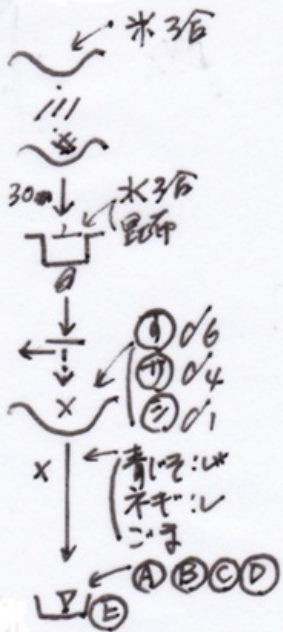 米3合
30m
水3合
昆布
す 6
サ 4
シ 1
x
x
青じそ:レ
ネギ:レ
ごま
A B C D
E